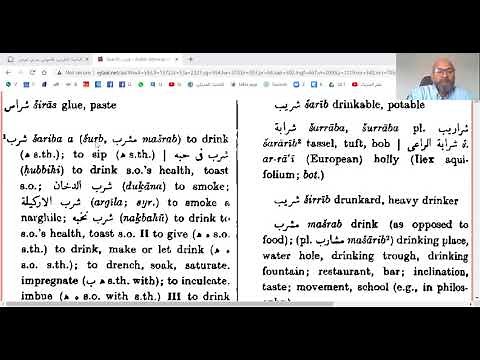 Not secure
شراس širās glue, paste
¹شرب šariba a (šurb, مشرب mašrab) to drink
(ه s.th.); to sip (ه s.th.) | شرب فى حبه
(ḥubbihī) to drink s.o.'s health, toast
s.o.; شرب الدخان (duḵāna) to smoke;
شرب الاركيلة (argīla; syr.) to smoke a
narghile; شرب نخبه (naḵbahū) to drink to
s.o.'s health, toast s.o. II to give (ه ه s.o.
s.th.) to drink, make or let drink (ه ه
s.o. s.th.); to drench, soak, saturate,
impregnate (ب ه s.th. with); to inculcate,
imbue (ه ه s.o. with s.th.) III to drink
شريب šarīb drinkable, potable
شرابة šurrāba, šurrāba pl. شراريب
šarārīb² tassel, tuft, bob | شرابة الراعى š.
ar-rā‘ī (European) holly (Ilex aqui-
folium; bot.)
شريب širrīb drunkard, heavy drinker
مشرب mašrab drink (as opposed to
food); (pl. مشارب mašārib²) drinking place,
water hole, drinking trough, drinking
fountain; restaurant, bar; inclination,
taste; movement, school (e.g., in philos-